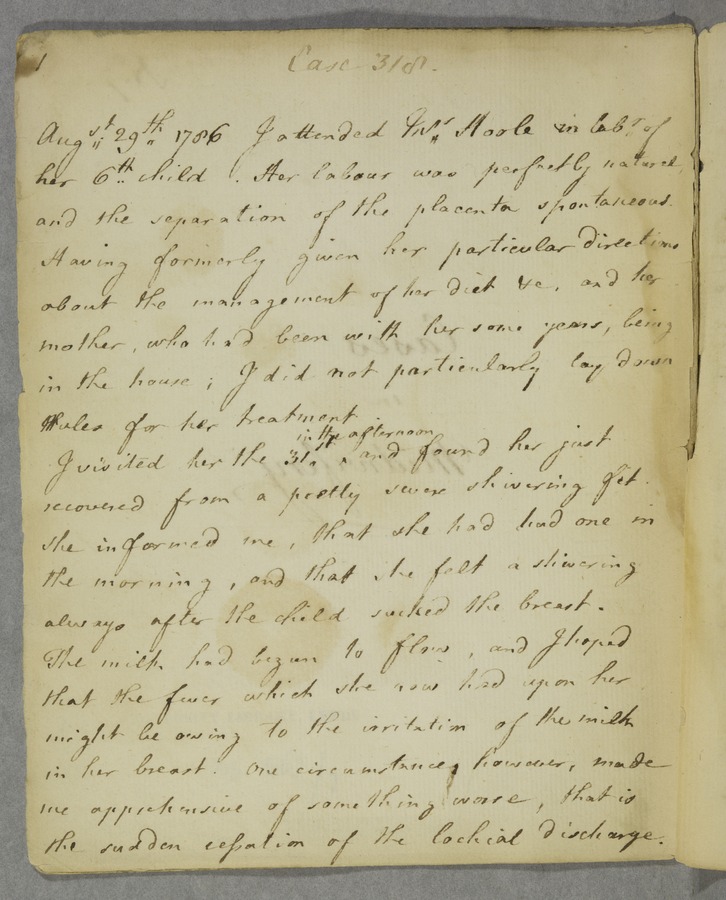 1
Case 318.
Augst 29th 1786 I attended Mrs Hoole in labr of
her 6th child. Her labour was perfectly natural,
and the separation of the placenta spontaneous.
Having formerly given her particular directions
about the management of her diet &c, and her
mother, who had been with her some years, being
in the house; I did not particularly lay down
Rules for her treatment
in the afternoon
I visited her the 31st ‸ and found her just
recovered from a pretty severe shivering fit.
She informed me, that she had had one in
the morning, and that she felt a shivering
always after the child sucked the breast.
The milk had begun to flow, and I hoped
that the fever which she now had upon her
might be owing to the irritation of the milk
in her breast. One circumstance, however, made
me apprehensive of something worse, that is
the sudden cessation of the lochial discharge.